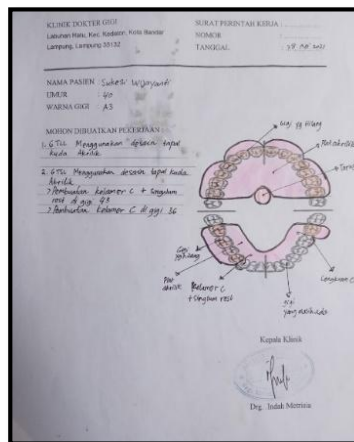 KLINIK DOKTER GIGI
Labuhan Ratu, Kec. Kedaton, Kota Bandar
Lampung, Lampung 35132
SURAT PERINTAH KERJA :
NOMOR :
TANGGAL : 2021
NAMA PASIEN : Wijayanti
UMUR : 40
WARNA GIGI : A3
MOHON DIBUATKAN PEKERJAAN :
1. GTSL Menggunakan desain tapal
kuda Akrilik
2. GTSL Menggunakan desain tapal kuda
Akrilik
> Pembuatan kelamer C + Singulum
rest di gigi 43
> Pembuatan kelamer C di gigi 36
Gigi yg hilang
Plat akrilik
Gigi
yang hilang
Plat
akrilik
Kelamer C
+ Singulum rest
gigi
yang masih ada
Cengkram C
Kepala Klinik
Drg. Indah Metrisia